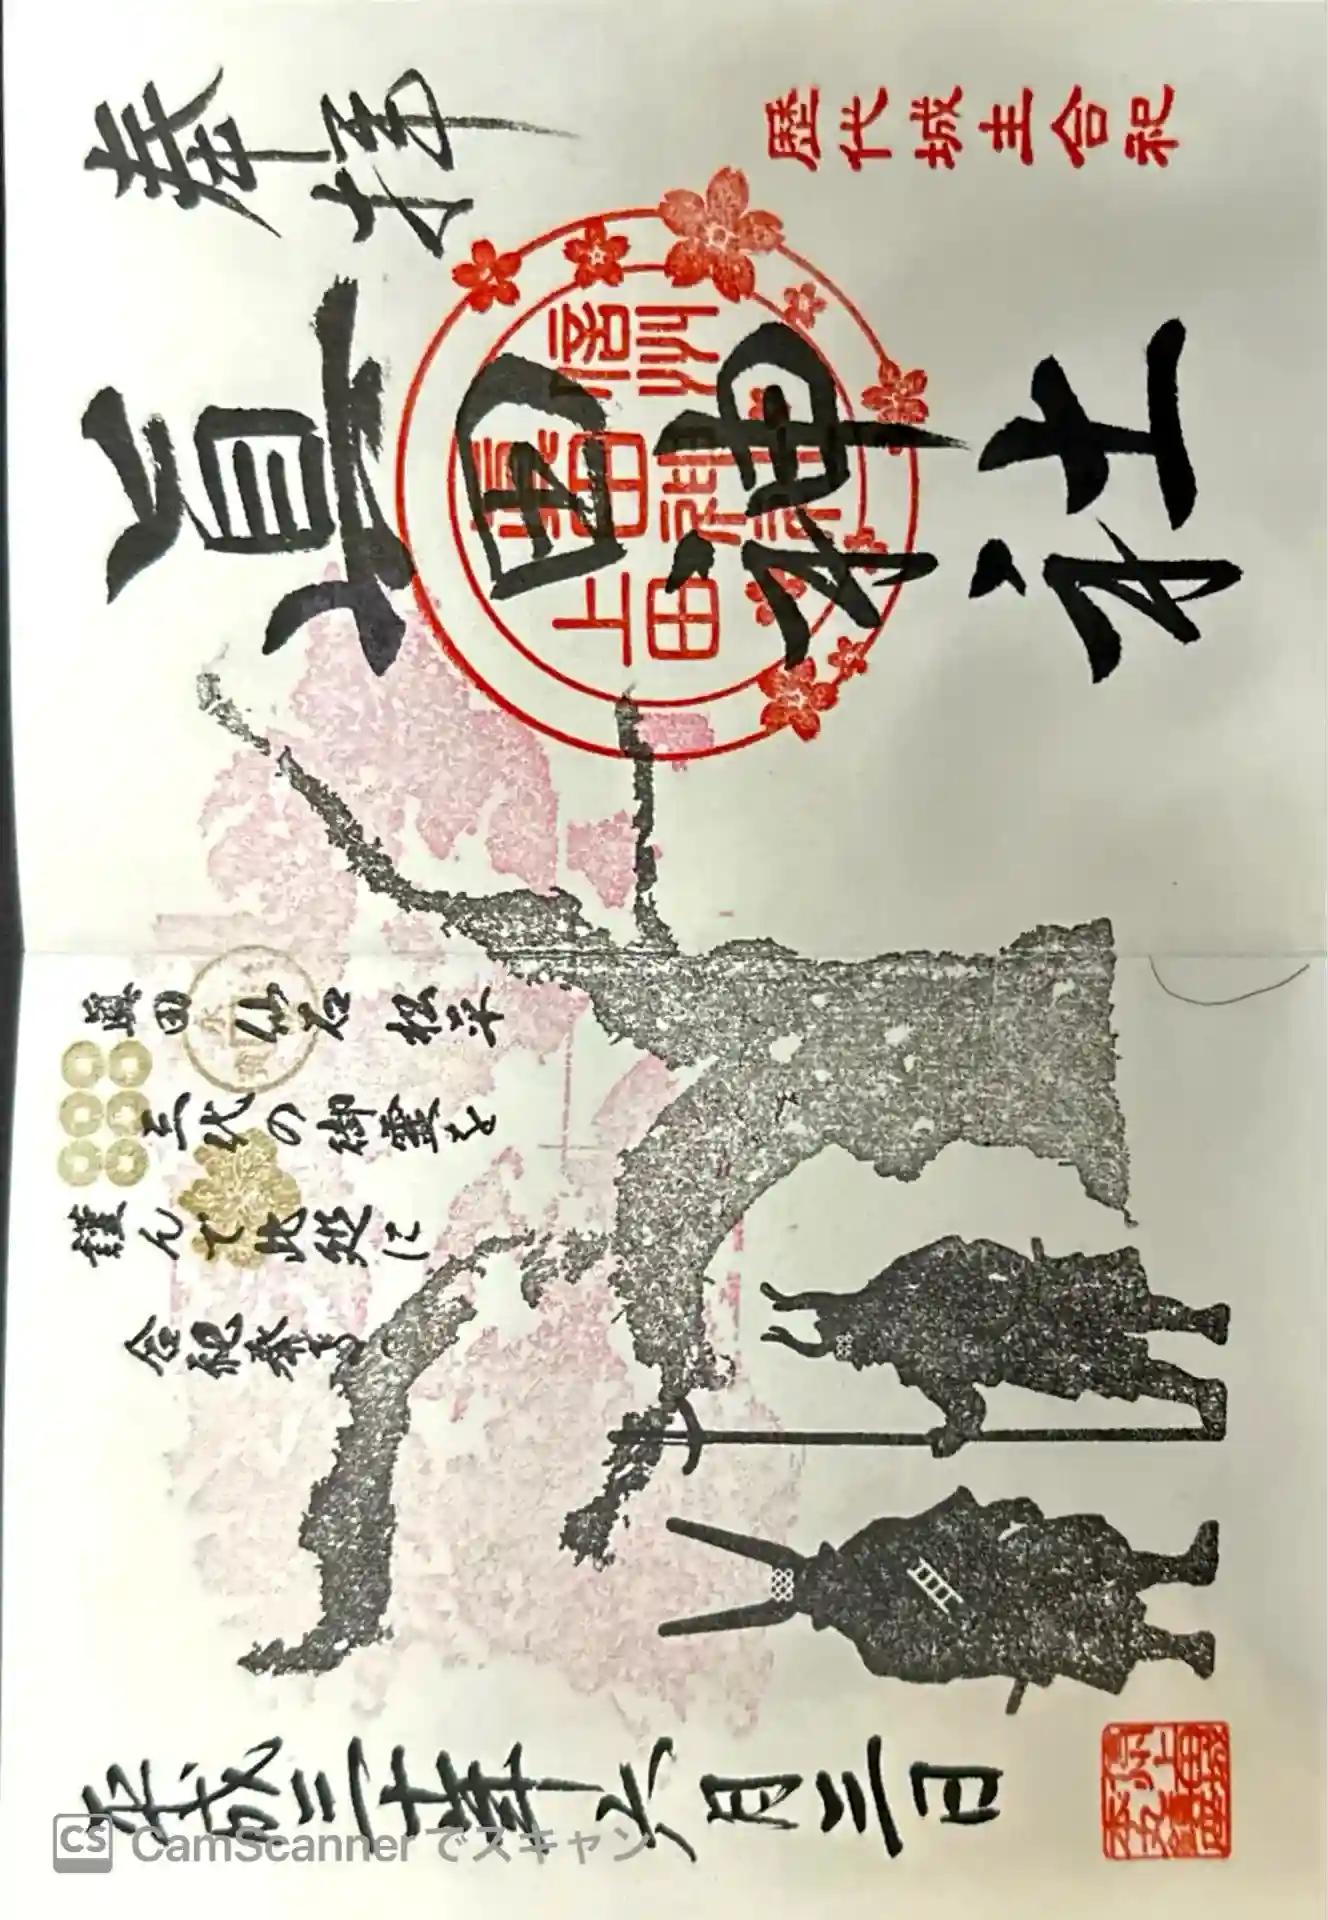 奉拝
歴代城主合祀
眞田神社
信州
眞田神社
上田
眞田仙石松平
三代の御霊を
謹んで此処に
合祀奉る
平成三十年六月三日
CS CamScannerでスキャン